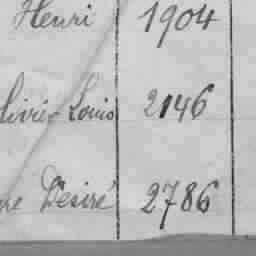 Henri 1904
livier Louis 2146
ne Désiré 2786